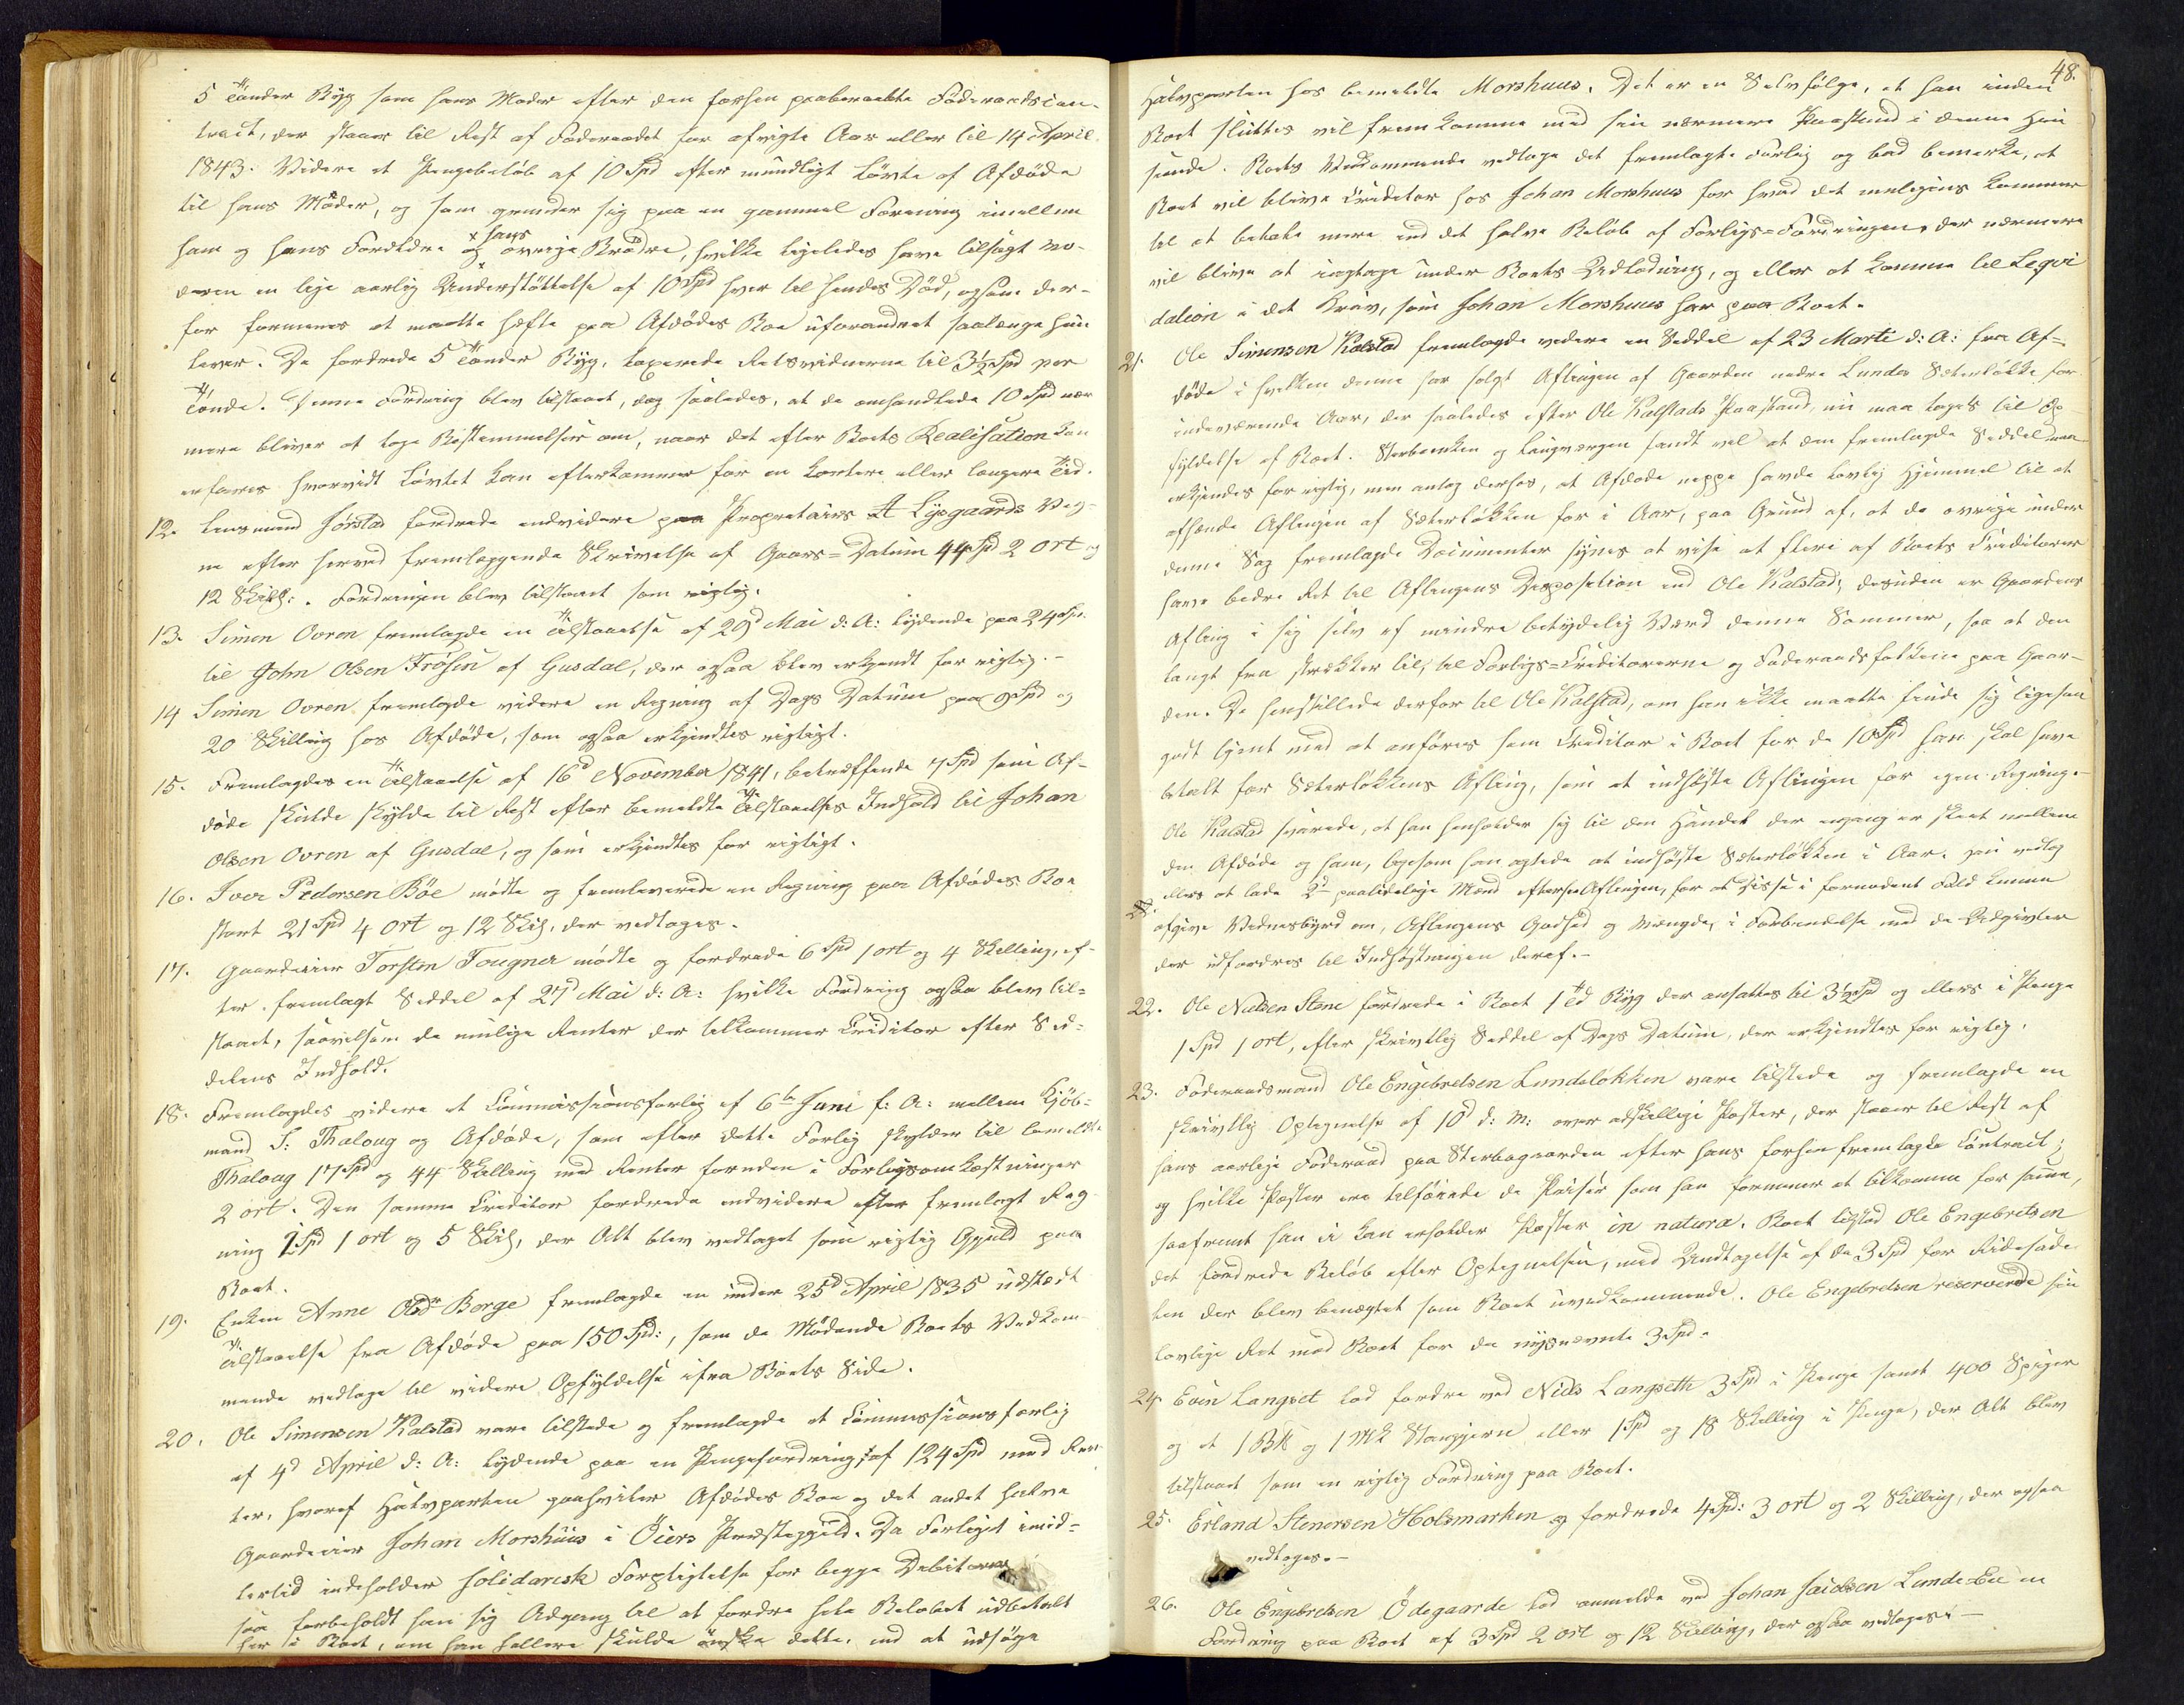 5 Tønder Byg som hans Moder efter den forhen paaberaabte Föderaadscon-
tract, der staaer til Rest af Föderaadet for afvigte Aar eller til 14 April
1843. Videre et Pengebeløb af 10 Spd efter mundtligt Løvte af Afdöde
til hans Moder, og som grunder sig paa en gammel Forening imellem
ham og hans Forældre og hans øvrige Brödre, hvilke ligeledes have tilsagt Mo-
deren en lige aarlig Understøttelse af 10 Spd hver til hendes Död, og som der-
for formenes at maatte hæfte paa Afdödes Boe uforandret saalænge hun
lever. De fordrede 5 Tønder Byg, taxerede Retsvidnerne til 3½ Spd per
Tønde. Denne Fordring blev tilstaaet, dog saaledes, at de omhandlede 10 Spd nær
mere bliver at tage Bestemmelser om, naar det efter Boets Realisation kan
erfares hvorvidt Løvtet kan efterkommes for en kortere eller længere Tid.
12. Lensmand Jørstad fordrede endvidere paa Proprietairs A Lysgaards Veg-
ne efter herved fremlæggende Skrivelse af Gaars-Datum 44 Spd 2 Ort og
12 Skill:. Fordringen blev tilstaaet som rigtig.
13. Simen Ovren fremlagde en Tilstaaelse af 29d Mai d: A: lydende paa 24 Spd.
til John Olsen Frösin af Gusdal, der ogsaa blev erkjendt for rigtig.-
14 Simen Ovren fremlagde videre en Regning af Dags Datum paa 9 Spd og
20 Skilling hos Afdöde, som ogsaa erkjendtes rigtigt.
15. Fremlagdes en Tilstaaelse af 16d November 1841, betræffende 7 Spd som Af-
döde skulde skylde til Rest efter bemeldte Tilstaaelses Indhold til Johan
Olsen Ovren af Gusdal, og som erkjendtes for rigtigt.
16. Iver Pedersen Böe mödte og fremleverede en Regning paa Afdödes Boe
stort 21 Spd 4 ort og 12 Skil, der vedtoges.
17. Gaardeier Torsten Fougner mödte og fordrede 6 Spd 1 ort og 4 Skilling, ef-
ter fremlagt Seddel af 27d Mai d: A: hvilke Fordring ogsaa blev til-
staaet, saavelsom de mulige Renter der tilkommer Creditor efter Sed-
delens Indhold.
18. Fremlagdes videre et Commissionsforlig af 6te Juni f: A: mellem Kjöb-
mand S: Thaloug og Afdöde, som efter dette Forlig skylder til bemeldte
Thaloug 17 Spd og 44 Skilling med Renter foruden i Forligsomkostninger
2 ort. Den samme Creditor fordrede endvidere efter fremlagt Reg-
ning 1 Spd 1 ort og 5 Skil, der Alt blev vedtaget som rigtig Gjæld paa
Boet.
19. Enken Anne Olsdr Borge fremlagde en under 25d April 1835 udstædt
Tilstaaelse fra Afdöde paa 150 Spd:, som de Mödende Boets Vedkom-
mende vedtage til videre Opfyldelse ifra Boets Side.
20. Ole Simensen Kalstad vare tilstede og fremlagde et Commissionsforlig
af 4d April d: A: lydende paa en Pengefordring af 124 Spd med Ren
ter, hvoraf Halvparten paahviler Afdödes Boe og det andet halve
Gaardeier Johan Morshuus i Öiers Præstegjeld. Da Forliget imid-
lertid indeholder solidarisk Forpligtelse for begge Debitorer
saa forbeholdt han sig Adgang til at fordre hele Beløbet udbetalt
her i Boet, om han hellere skulde önske dette, end at udsöge
48.
Halvparten hos bemeldte Morshuus. Det er en Selvfölge, at han inden
Boet sluttes vil fremkomme med sin nærmere Paastand i denne Hen
seende. Boets Vedkommende vedtoge det fremlagte Forlig og bad bemærke, at
Boet vil blive Creditor hos Johan Morshuus for hvad det muligens kommer
til at betale mere end det halve Beløb af Forligs-Fordringen, der nærmere
vil blive at iagtage under Boets Udlodning, og eller at komme til Liqvi
dation i det Krav, som Johan Morshuus har paa Boet.
21. Ole Simensen Kalstad fremlagde videre en Seddel af 23 Marti d: A: fra Af-
döde i hvilken denne har solgt Aflingen af Gaarden nedre Lundes Sæterløkke for
indeværende Aar, der saaledes efter Ole Kalstads Paastand, nu maa tages til Op-
fyldelse af Boet. Sterbenken og Laugværgen fandt vel at den fremlagte Seddel maa
erkjendes for rigtig, men antog derhos, at Afdöde neppe havde lovlig Hjemmel til at
afhænde Aflingen af Sæterløkken for i Aar, paa Grund af, at de øvrige under
denne Sag fremlagde Documenter synes at vise at flere af Boets Creditorer
have bedre Ret til Aflingens Desposition end Ole Kalstad; desuden er Gaardens
Afling i sig selv af mindre betydelig Værd denne Sommer, saa at den
langt fra strækker til, til Forligs-Creditorerne og Föderaadsfolkene paa Gaar-
den. De henstillede derfor til Ole Kalstad, om han ikke maatte finde sig ligesaa
godt tjent med at anføres som Creditor i Boet for de 10 Spd han skal have
betalt for Sæterløkkens Afling, som at indhöste Aflingen for egen Regning.-
Ole Kalstad svarede, at han henholder sig til den Handel der engang er skeet mellem
den Afdöde og ham, ligesom han agtede at indhöste Sæterløkken i Aar. Han vedtog
ellers at lade 2de paalidelige Mænd efterse Aflingen, for at disse i fornødent Fald kunne
afgive Vidnesbyrd om, Aflingens Godhed og Mængde, i Forbindelse med de Udgivter
der udfordres til Indhöstningen deraf.-
22. Ole Nielsen Stene fordrede i Boet 1 Td Byg der ansattes til 3½ Spd og ellers i Penge
1 Spd 1 ort, efter skrivtlig Seddel af Dags Datum, der erkjendtes for rigtig.
23. Föderaadsmand Ole Engebretsen Lundeløkken vare tilstede og fremlagde en
skrivtlig Optegnelse af 10d d: M: over adskillige Poster, der staaer til Rest af
hans aarlige Föderaad paa Sterbogaarden efter hans forhen fremlagte Contract;
og hvilke Poster ere tilføiede de Priser som han formener at tilkomme for samme,
saafremt han ei kan erholder Poster in natura. Boet tilstod Ole Engebretsen
det fordrede Beløb efter Optegnelsen, med Undtagelse af de 3 Spd for Ridesade
len der blev benægtet som Boet uvedkommende. Ole Engebretsen reserverede sin
lovlige Ret mod Boet for de nysnævnte 3 Spd.
24 Even Langset lod fordre ved Niels Langseth 3 Spd i Penge samt 400 Spiger
og et 1 B℔ og 1 Mk Stangjern eller 1 Spd og 18 Skilling i Penge, der Alt blev
tilstaaet som en rigtig Fordring paa Boet.
25. Erland Stenersen Holsmarken og fordrede 4 Spd: 3 ort og 2 Skilling, der ogsaa
vedtoges.-
26. Ole Engebretsen Ödegaarde lod anmelde ved Johan Lunde-Eie en
Fordring paa Boet af 3 Spd 2 ort og 12 Skilling, der ogsaa vedtoges.-